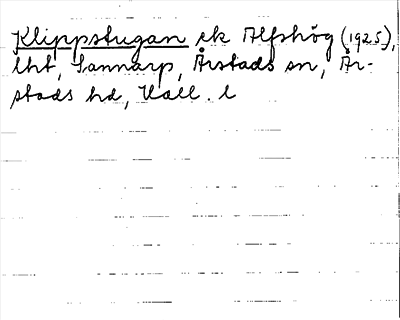 Klippstugan ek Alfshög (1925),
lht, Sannarp, Årstads sn, År-
stads hd, Hall. l